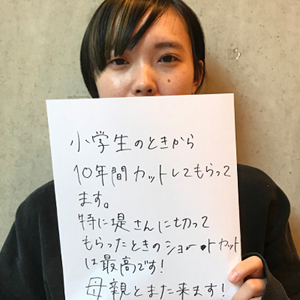 小学生のときから
10年間カットしてもらって
ます。
特に堤さんに切って
もらったときのショートカット
は最高です!
母親とまた来ます!